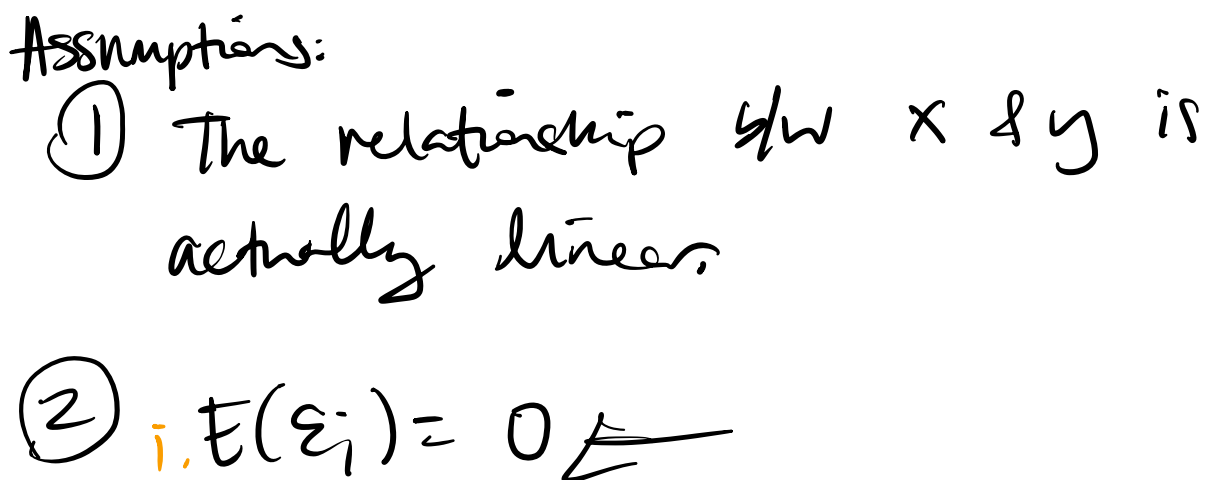 Assumptions:
① The relationship b/w x & y is
actually linear.
② i. E(εᵢ) = 0 ←